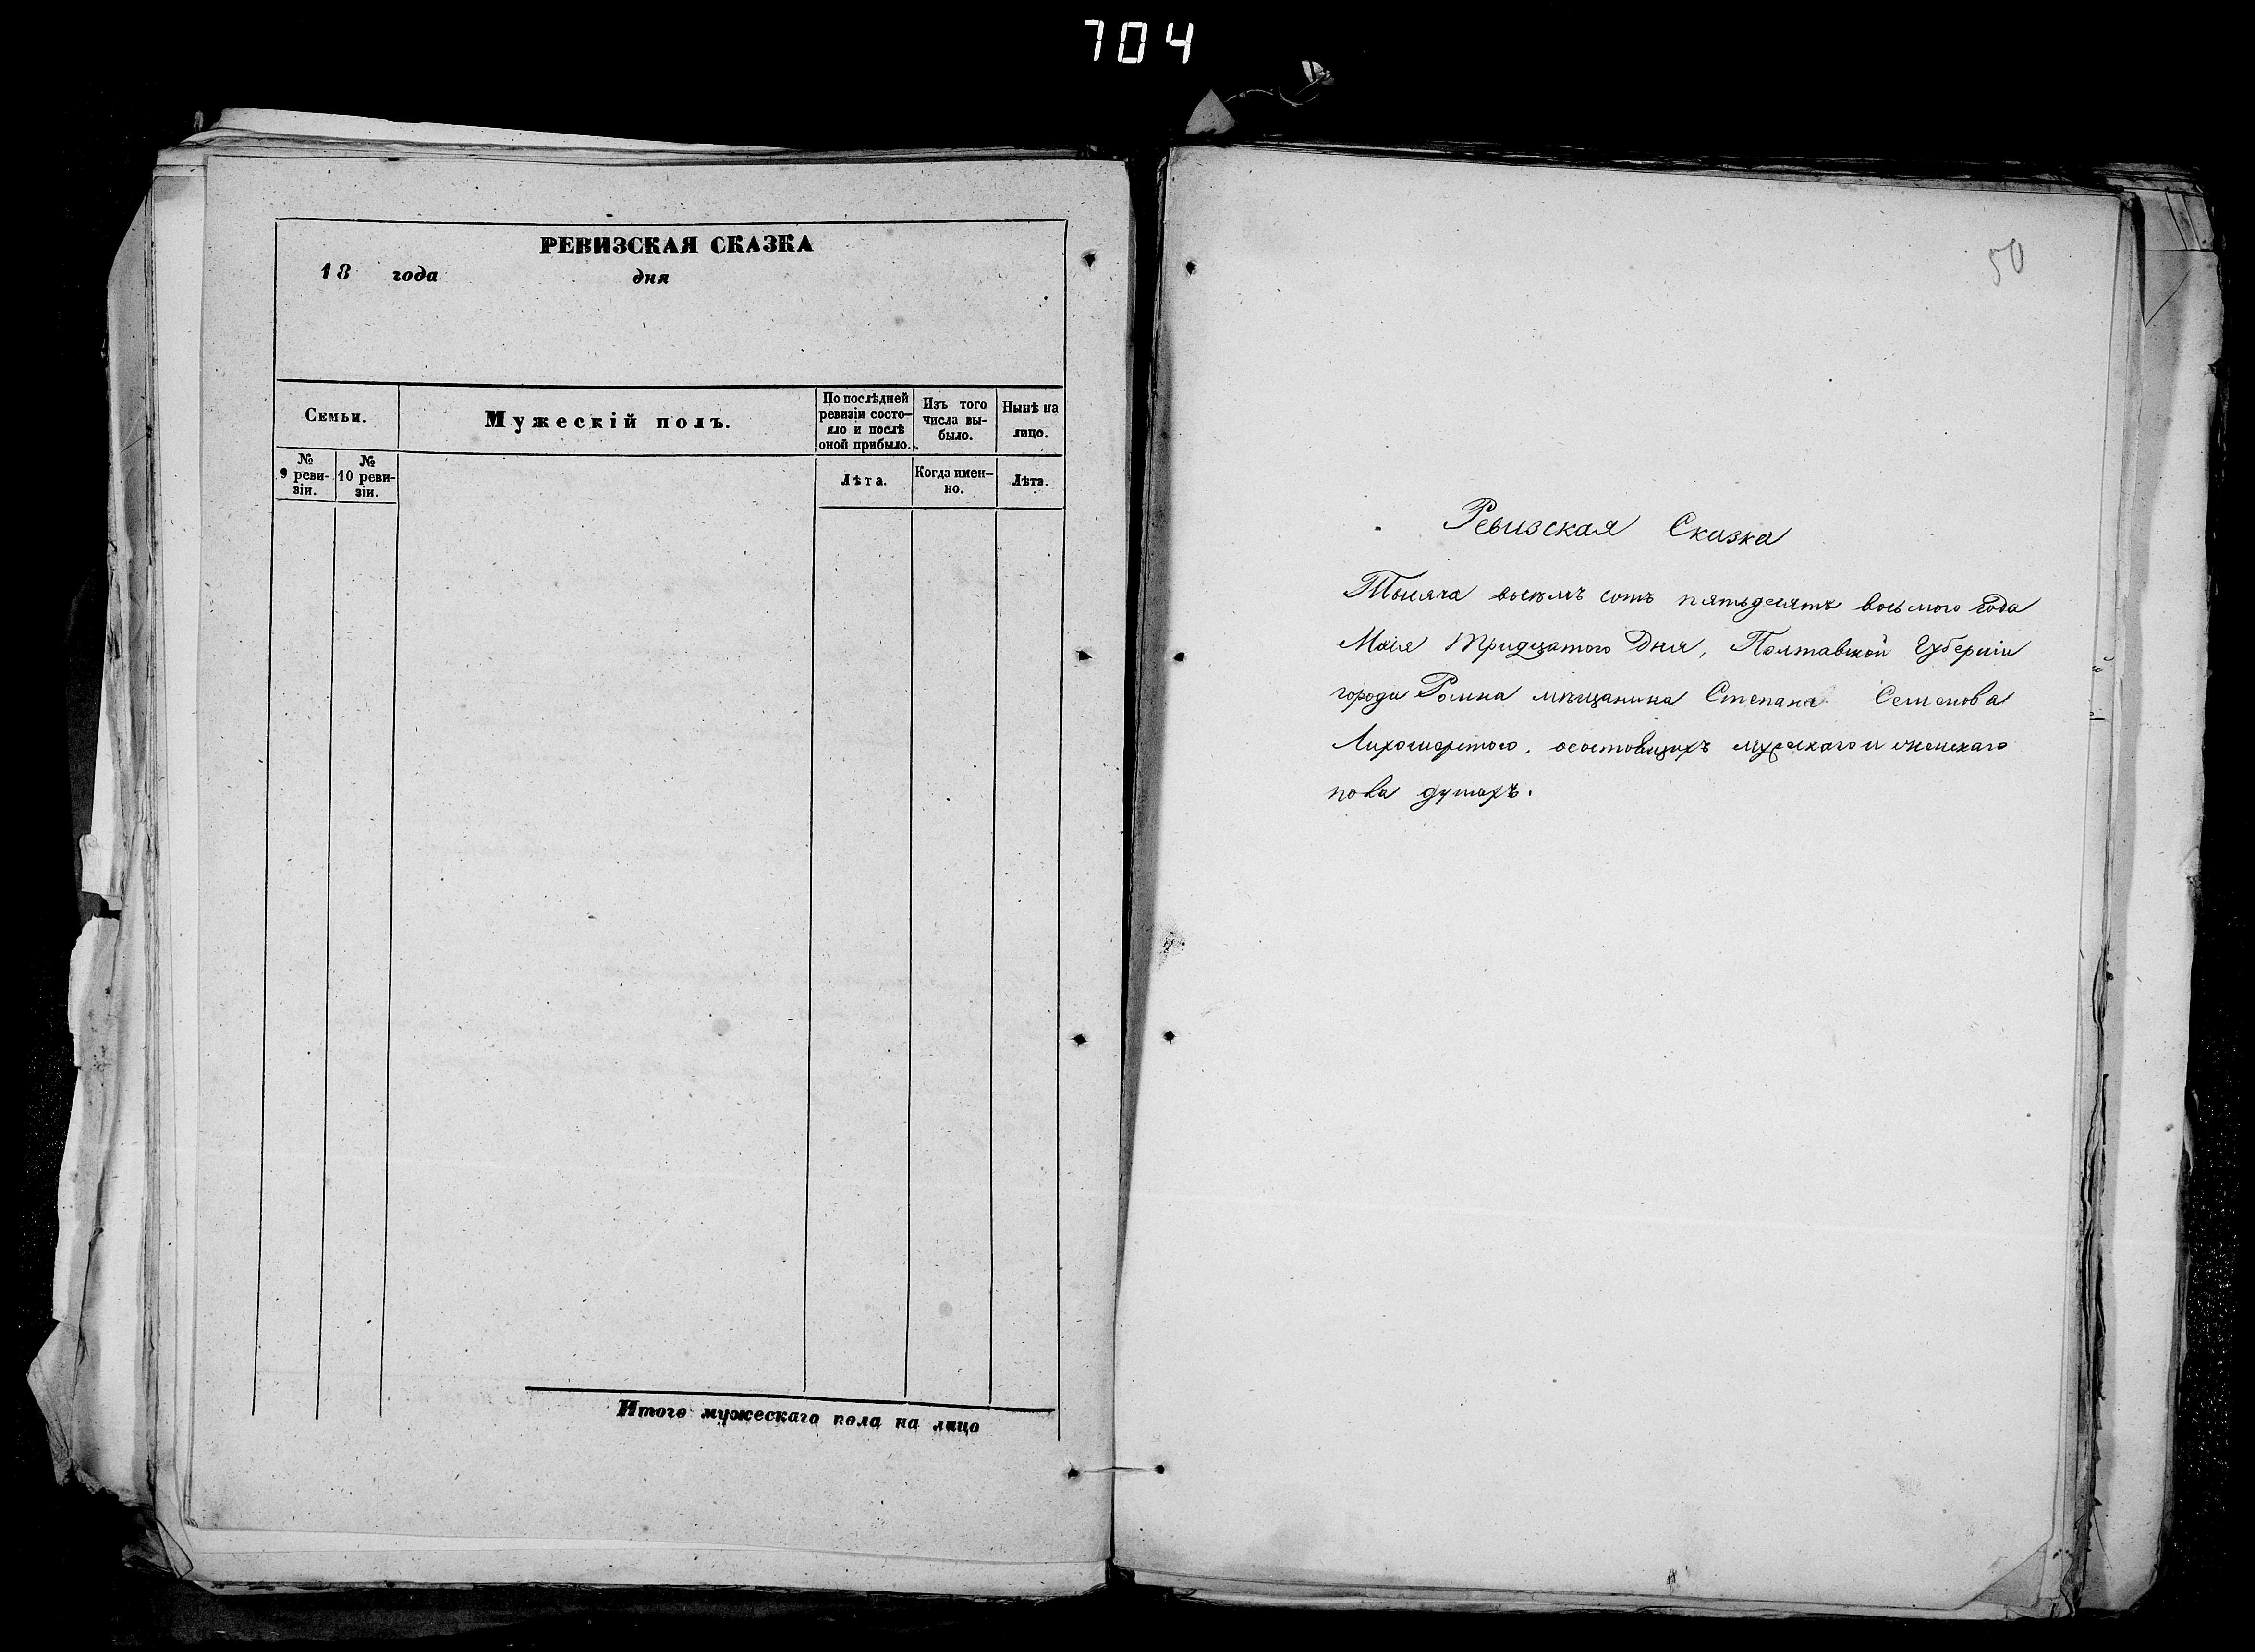 704
РЕВИЗСКАЯ СКАЗКА
18 года дня
Семьи.
Мужескій полъ.
По послѣдней
ревизіи состо-
яло и послѣ
оной прибыло.
Изъ того
числа вы-
было.
Нынѣ на
лицо.
№
9 реви-
зіи.
№
10 реви-
зіи.
Лѣта.
Когда имен-
но.
Лѣта.
Итого мужескаго пола на лицо
50
Ревизская Сказка
Тысяча восемъ сотъ пятьдесятъ восьмого года
Маія Тридцатого Дня, Полтавской Губерніи
города Ромна мѣщанина Степана Семенова
мужескаго и женскаго
пола душахъ.